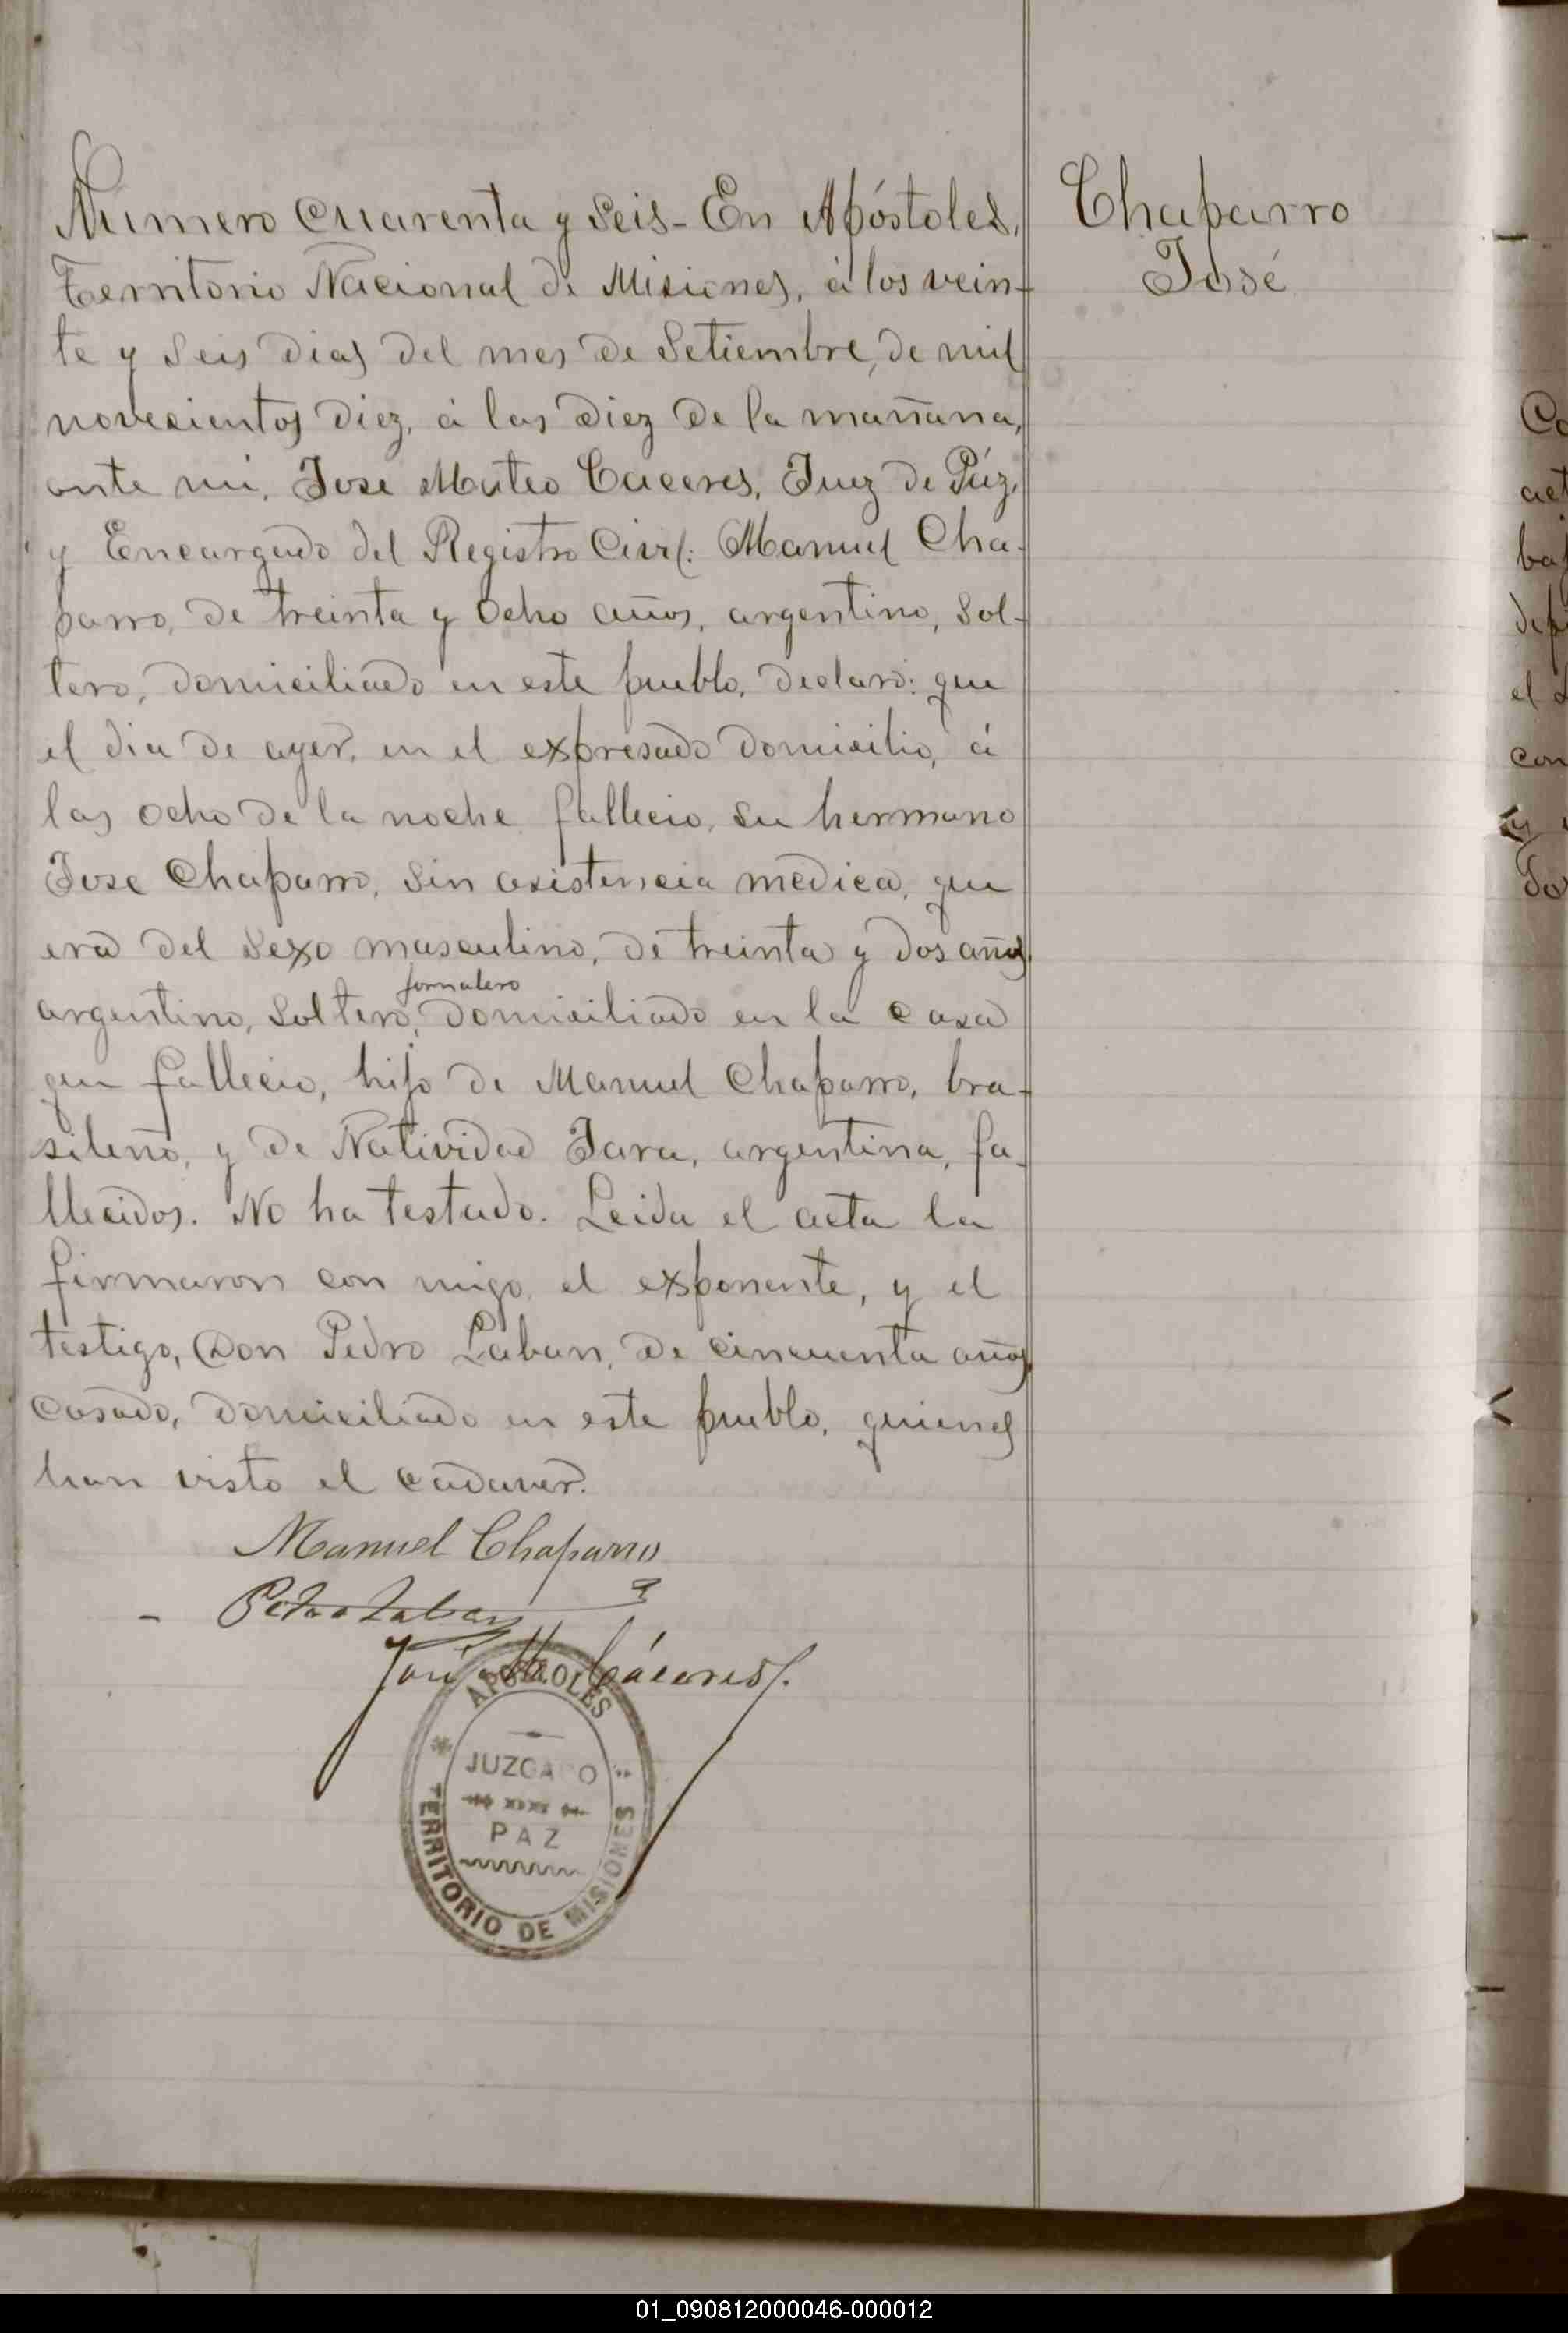 Número cuarenta y seis - En Apóstoles,
Territorio Nacional de Misiones, á los vein-
te y seis dias del mes de Setiembre, de mil
novecientos diez, á las diez de la mañana,
ante mi, Jose Mateo Caceres, Juez de Páz,
y Encargado del Registro Civil: Manuel Cha-
parro, de treinta y ocho años, argentino, sol-
tero, domiciliado en este pueblo, declaró: que
el dia de ayer, en el expresado domicilio, á
las ocho de la noche fallecio, su hermano
Jose Chaparro, sin asistencia medica, que
era del sexo masculino, de treinta y dos años,
jornalero
argentino, soltero, domiciliado en la casa
que fallecio, hijo de Manuel Chaparro, bra-
sileño, y de Natividad Jara, argentina, fa-
llecidos. No ha testado. Leida el acta la
firmaron con migo, el exponente, y el
testigo, Don Pedro Laban, de cincuenta años,
casado, domiciliado en este pueblo, quienes
han visto el cadaver.
Manuel Chaparro
Pedro Laban
José M. Cáceres.
APOSTOLES
JUZGADO
PAZ
TERRITORIO DE MISIONES
Chaparro
José
01_090812000046-000012